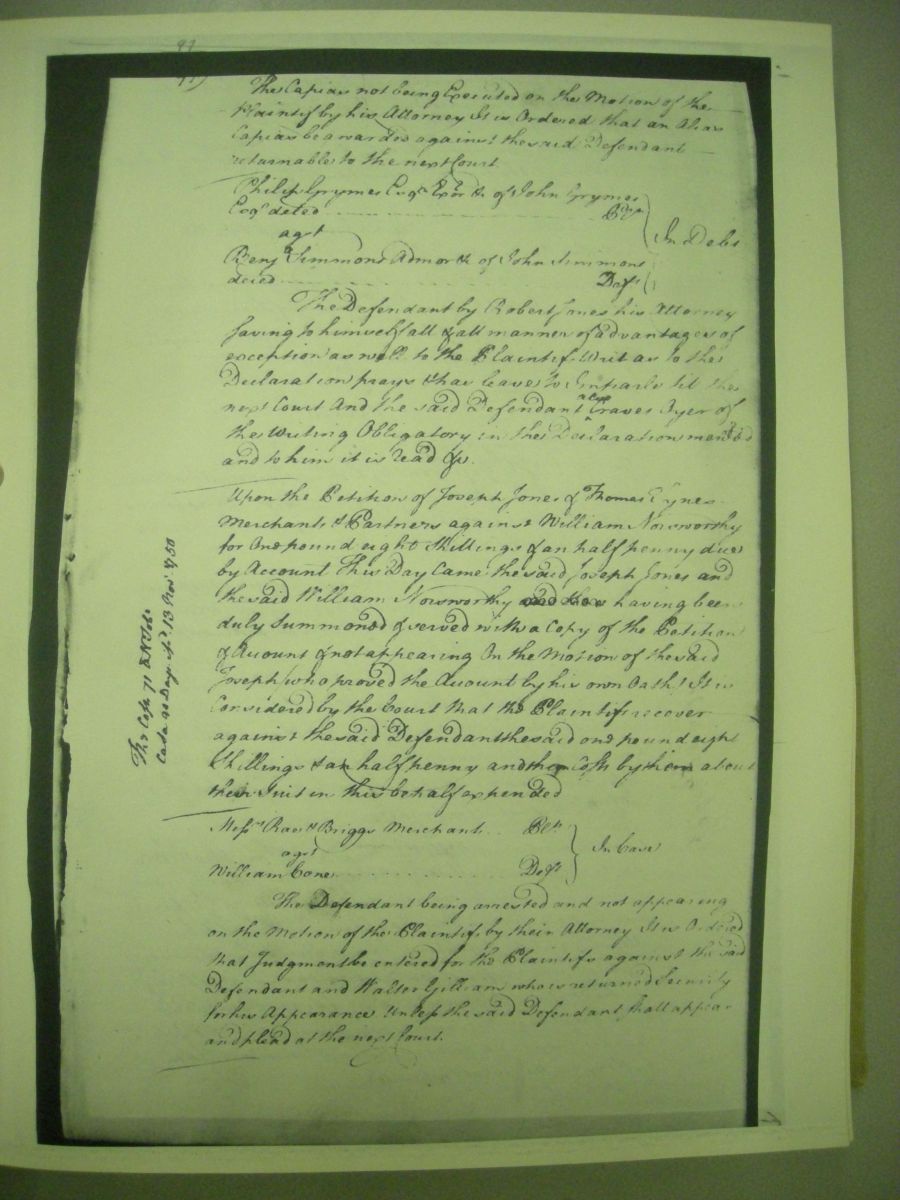 The Capias not being Executed on the Motion of the
Plaintif by his Attorney It is Ordered that an Alias
Capias be awarded against the said Defendant
returnable to the next Court
Philip Grymes Esqr Exor &c of John Grymes
Esqr deced Plt
agst In Debt
Benj Simmons Admor &c of John Simmons
deced Deft
The Defendant by Robert Jones his Attorney
Saving to himself all & all manner of advantages of
exception as well to the Plaintifs Writ as to the
Declaration prays & has leave to Imparle til the
next Court And the said Defendant also Craves Oyer of
the Writing Obligatory in the Declaration
and to him it is read &c.
Upon the Petition of Joseph Jones & Thomas Eynes
Merchants & Partners against William Norsworthy
for One pound eight Shillings & an half penny due
by Account This Day Came the said Joseph Jones and
the said William Norsworthy having been
duly Summoned & served with a Copy of the Petition
& Account & not appearing On the Motion of the said
Joseph who proved the Account by his own Oath It is
Considered by the Court that the Plaintifs recover
against the said Defendant the said one pound eight
Shillings & an half penny and their Costs by them about
their Suit in this behalf expended
Messrs Briggs Merchant Plt
agst In Case
William Cone Deft
The Defendant being arrested and not appearing
on the Motion of the Plaintifs by their Attorney It is Ordered
that Judgment be entered for the Plaintifs against the said
Defendant and Walter Gilliam who is returned Security
for his Appearance Unless the said Defendant shall appear
and plead at the next Court.
Ths Cost 71